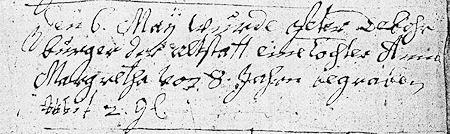 Den 6. Maÿ wurde Peter
burger der altstatt eine tochter Anna
Margretha von 8. Jahren begraben
2. gl.